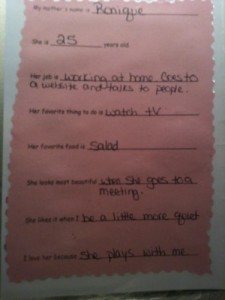 My mother's name is Monique
She is 25 years old.
Her job is working at home. Goes to
a website and talks to people.
Her favorite thing to do is watch tV
Her favorite food is Salad
She looks most beautiful when she goes to a
meeting.
She likes it when I be a little more quiet
I love her because she plays with me